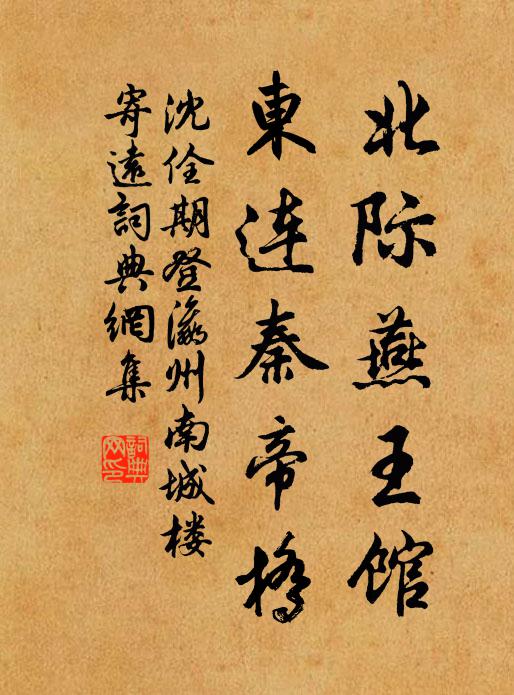 北际燕王馆
東连秦帝橋
沈佺期登瀛州南城楼
寄遠詞典網集
詞典
网印